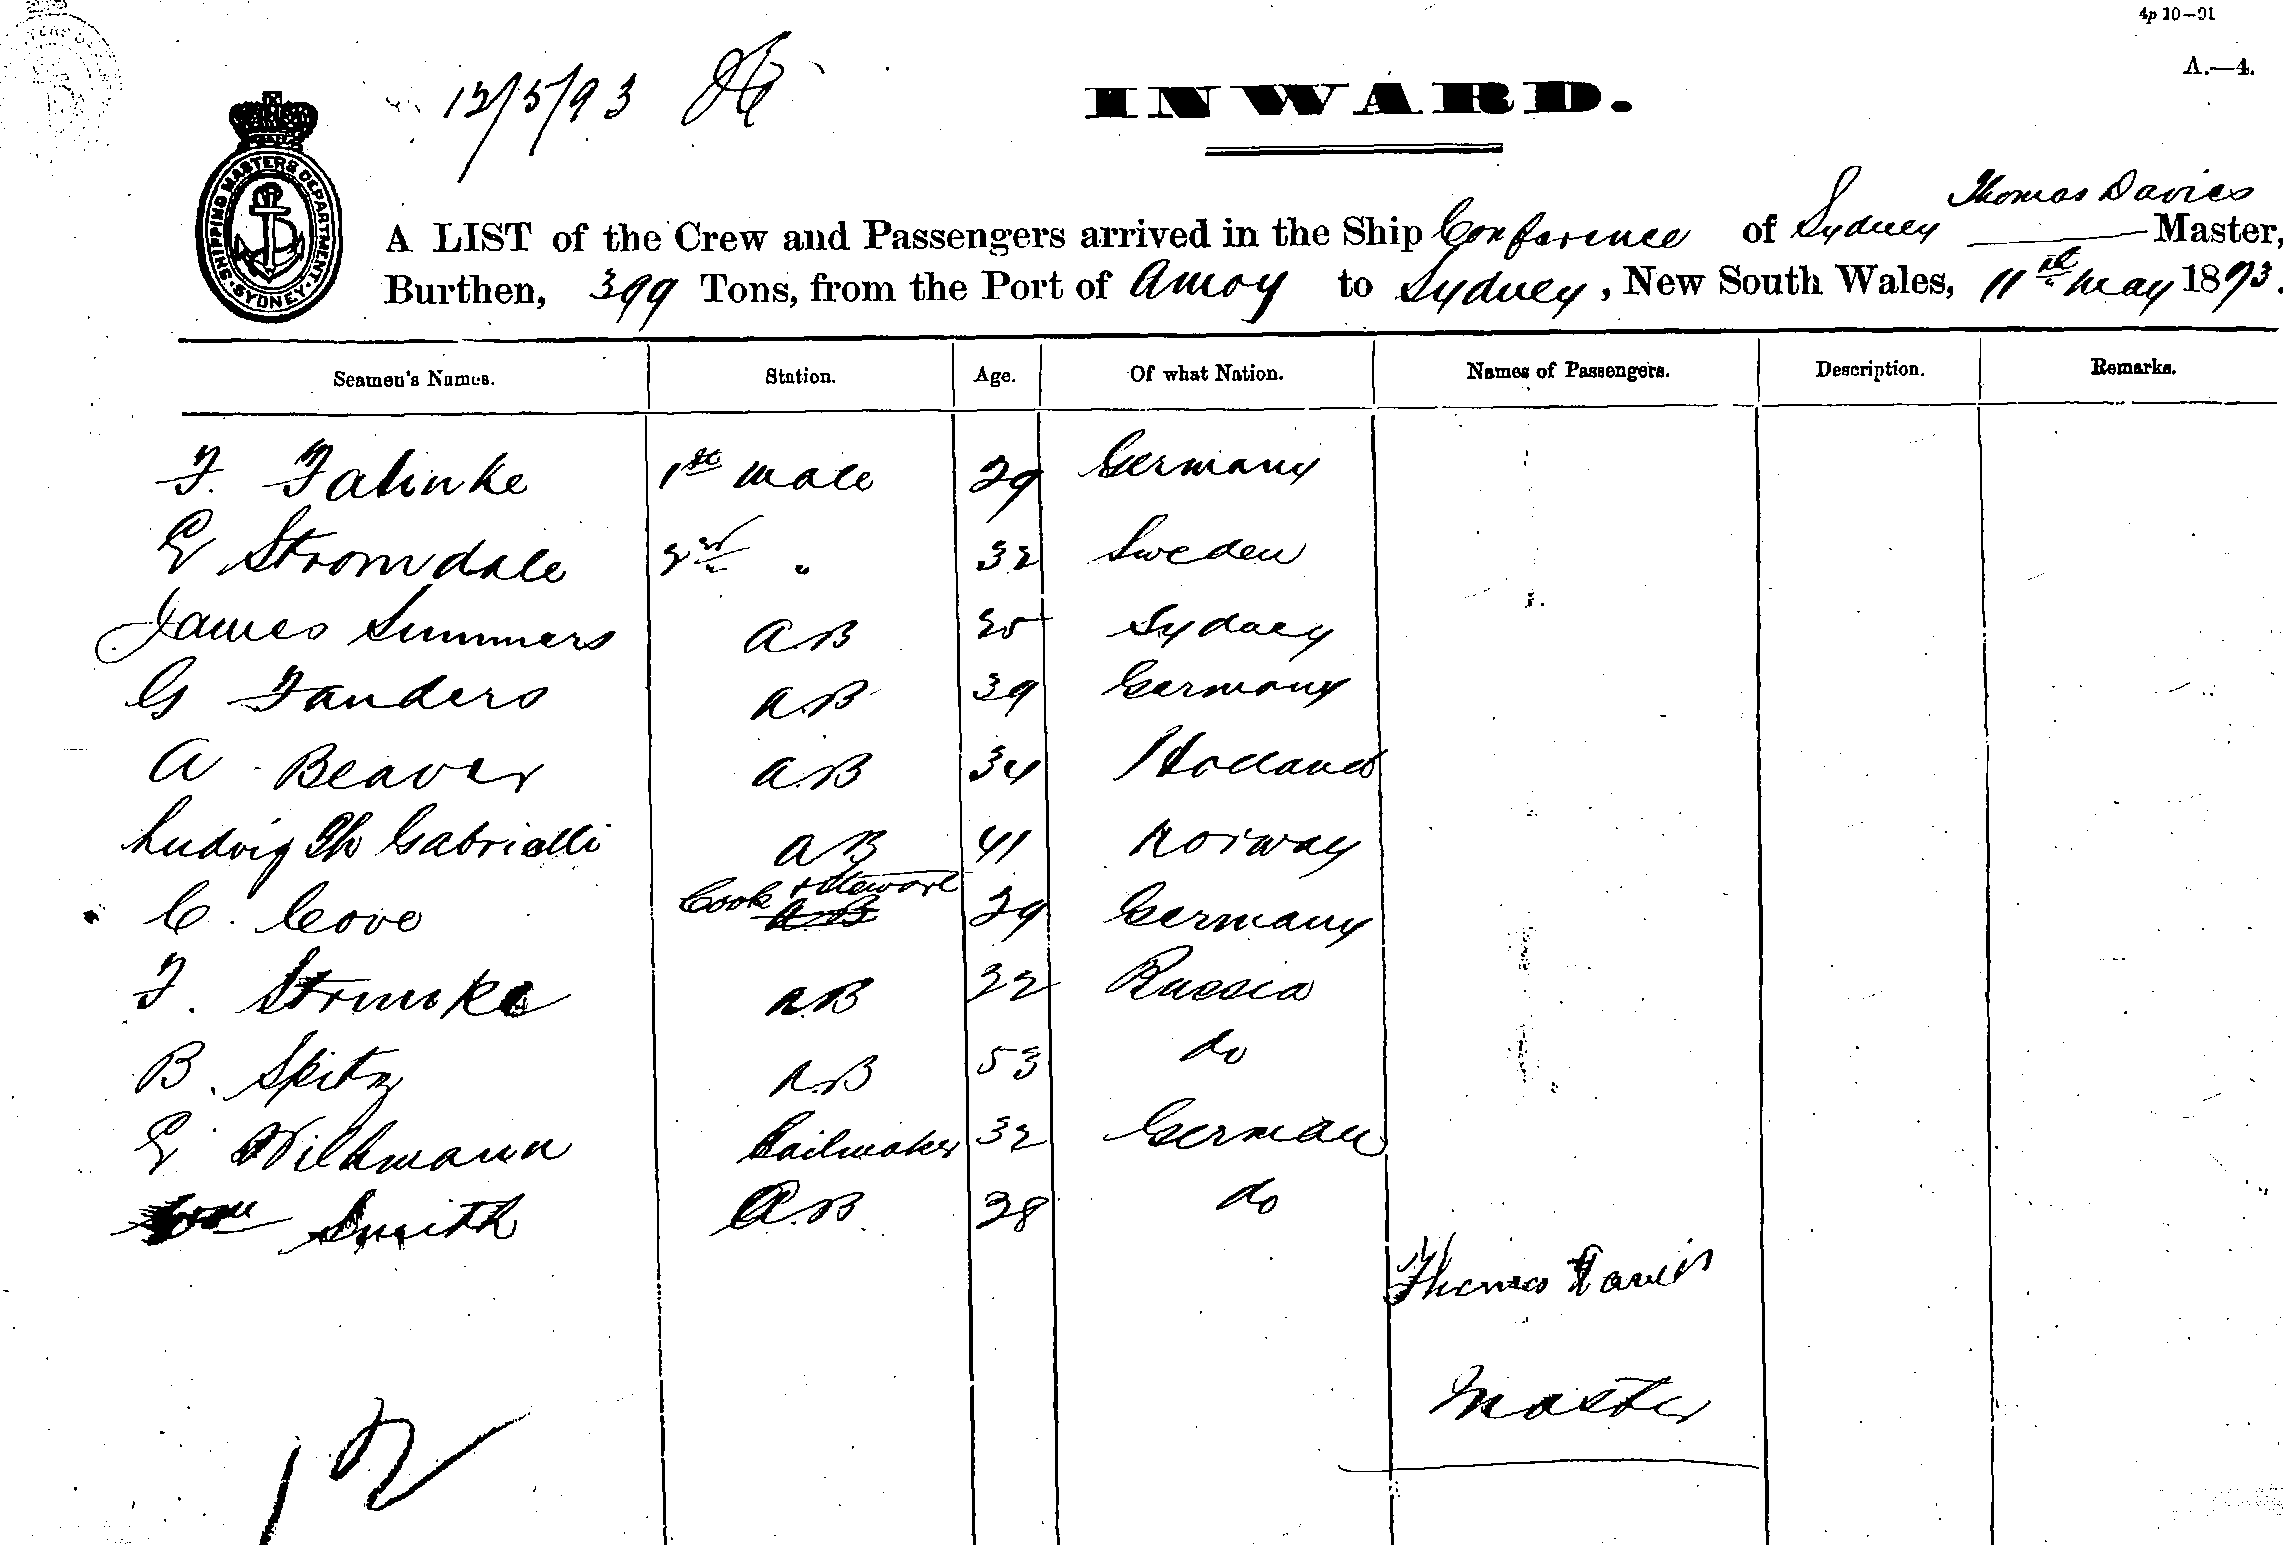 4p 10—91
A.—4.
12/5/93
INWARD.
SHIPPING MASTERS DEPARTMENT · SYDNEY ·
Thomas Davies
A LIST of the Crew and Passengers arrived in the Ship Conference of Sydney Master,
Burthen, 399 Tons, from the Port of Amoy to Sydney, New South Wales, 11th May 1893.
Seamen's Names. Station. Age. Of what Nation. Names of Passengers. Description. Remarks.
F. Falinke 1st Mate 29 Germany
E Stromdale 2nd " 32 Sweden
James Summers AB Sydney
G Fanders AB 39 Germany
A Beaver AB 34 Holland
Ludvig Th Gabrielli AB 41 Norway
C. Cove Cook & Steward AB 29 Germany
F. Strunske AB 22 Russia
B. Spitz AB 53 do
E Wilkmann Sailmaker 32 German
Smith A.B. 28 do
Thomas Davies
Master
12